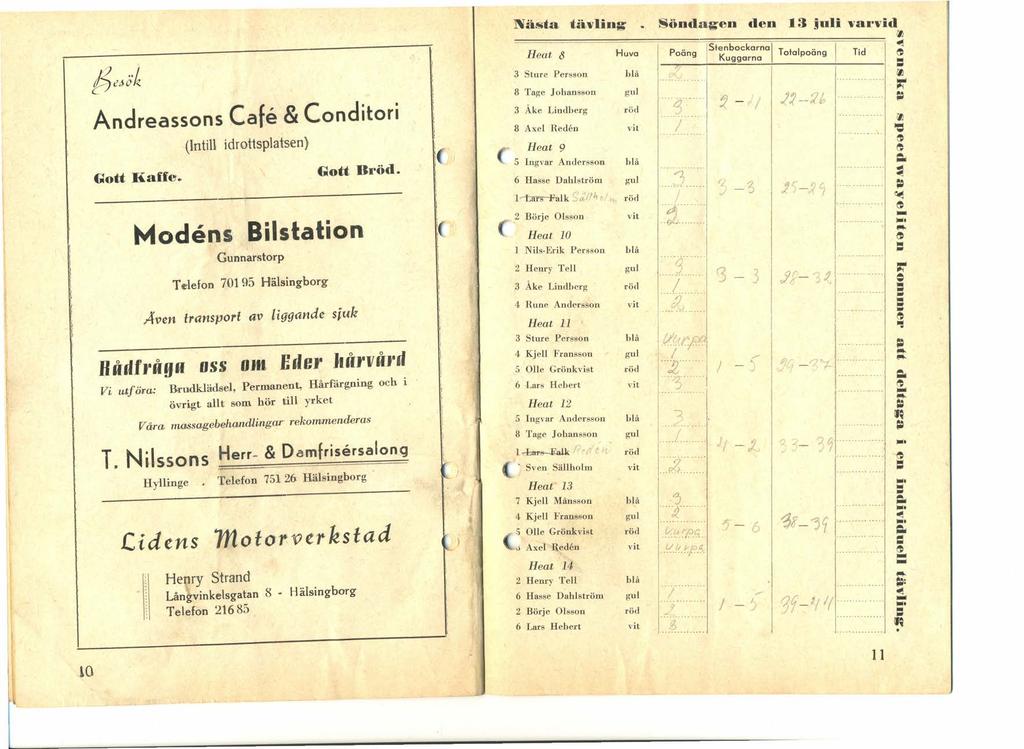 Besök
Andreassons Café & Conditori
(Intill idrottsplatsen)
Gott Kaffe. Gott Bröd.
Modéns Bilstation
Gunnarstorp
Telefon 701 95 Hälsingborg
Även transport av liggande sjuk
Rådfråga oss om Eder hårvård
Vi utföra: Brudklädsel, Permanent, Hårfärgning och i
övrigt allt som hör till yrket
Våra massagebehandlingar rekommenderas
T. Nilssons Herr- & Damfrisérsalong
Hyllinge . Telefon 751 26 Hälsingborg
Lidens Motorverkstad
Henry Strand
Långvinkelsgatan 8 - Hälsingborg
Telefon 216 85
10
Nästa tävling . Söndagen den 13 juli varvid
svenska speedwayeliten kommer att deltaga i en individuell tävling.
Heat 8 Huva Poäng Stenbockarna Kuggarna Totalpoäng Tid
3 Sture Persson blå 2
8 Tage Johansson gul
3 Åke Lindberg röd 3 2-4 22-26
8 Axel Redén vit 1
Heat 9
5 Ingvar Andersson blå
6 Hasse Dahlström gul 3 3-3 25-29
1 Lars Falk Sällholm röd 1
2 Börje Olsson vit 2
Heat 10
1 Nils-Erik Persson blå
2 Henry Tell gul 3 3-3 28-32
3 Åke Lindberg röd 1
4 Rune Andersson vit 2
Heat 11
3 Sture Persson blå Vurpa
4 Kjell Fransson gul 1
5 Olle Grönkvist röd 2 1-5 29-37
6 Lars Hebert vit 3
Heat 12
5 Ingvar Andersson blå 3
8 Tage Johansson gul 1
1 Lars Falk Redén röd 4-2 33-39
Sven Sällholm vit 2
Heat 13
7 Kjell Månsson blå 3
4 Kjell Fransson gul 2
5 Olle Grönkvist röd vurpa 5-6 38-39
Axel Redén vit vurpa
Heat 14
2 Henry Tell blå
6 Hasse Dahlström gul 1
2 Börje Olsson röd 2 1-5 39-44
6 Lars Hebert vit 3
11